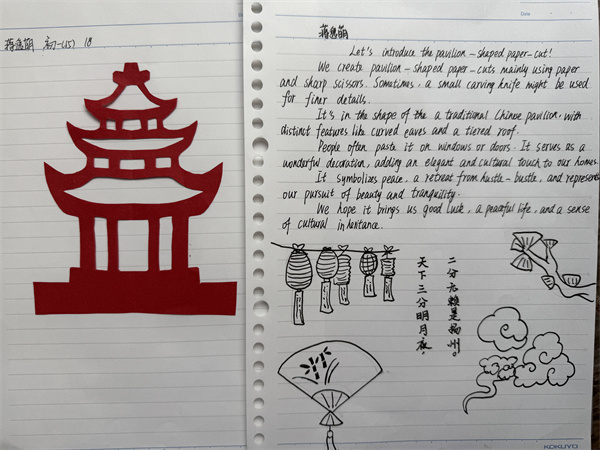 蒋 萌 初一(5) 18
Date
蒋 萌
Let's introduce the pavilion-shaped paper-cut!
We create pavilion-shaped paper-cuts mainly using paper
and sharp scissors. Sometimes, a small carving knife might be used
for finer details.
It's in the shape of the a traditional Chinese pavilion, with
distinct features like curved eaves and a tiered roof.
People often paste it on windows or doors. It serves as a
wonderful decoration, adding an elegant and cultural touch to our homes.
It symbolizes peace, a retreat from hustle-bustle, and represents
our pursuit of beauty and tranquility.
We hope it brings us good luck, a peaceful life, and a sense
of cultural inheritance.
天下三分明月夜,
二分无赖是扬州。
KOKUYO